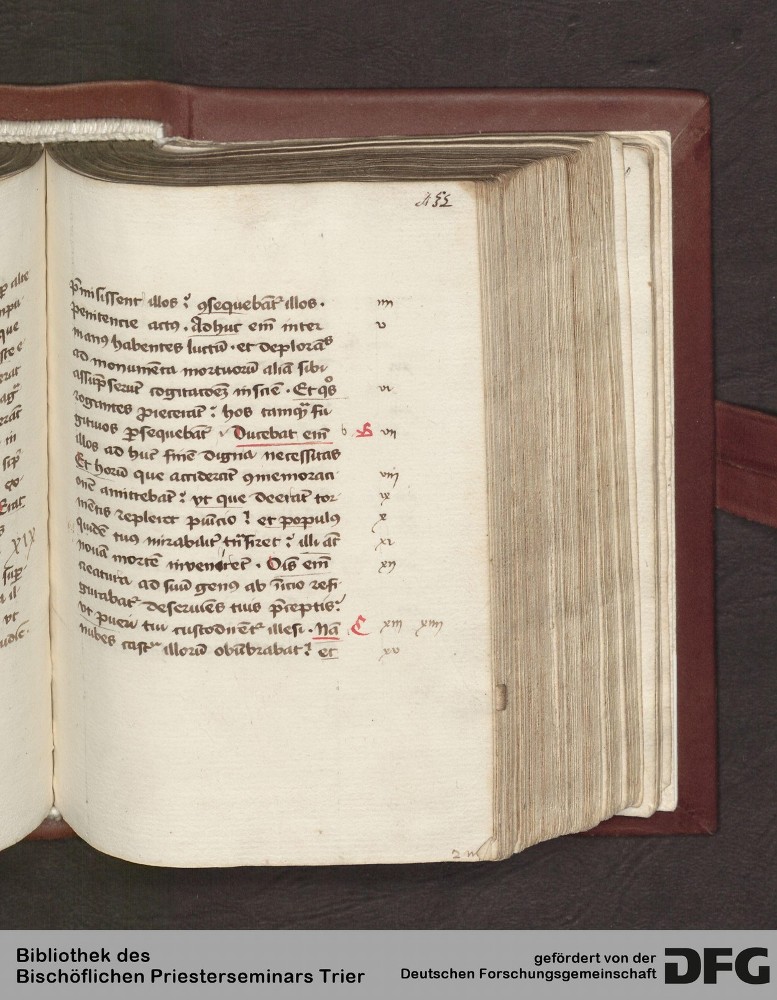 455
p̄misissent illos ꝯsequebāt᷑ illos · iiii
penitencie actꝰ · Adhuc em̄ inter v
manꝰ habentes luctū · et deplorātes
ad monumēta mortuorū aliā sibi
assūpserūt cogitacōem īsciē · Et qͦs vi
rogantes proiecerāt hos tamqͣ fu
gitiuos ꝑsequebāt᷑ Ducebat em̄ b B vii
illos ad huc finē digna necessitas
Et horū que acciderāt ꝯmemoraci viii
onē amittebāt vt que deerāt tor ix
mētis repleret pūicio et populꝰ x
quidē tuus mirabilit᷑ tn̄siret illi āt xi
nouā mortē inuenirēt · Oīs em̄ xii
creatura ad suū genꝰ ab īicio refi
gurabat᷑ deseruiēs tuis p̄ceptis
vt pueri tui custodirēt᷑ illesi · Nā C xiii xiiii
nubes castra illorū obūbrabat et xv
xix
Bibliothek des
Bischöflichen Priesterseminars Trier
gefördert von der
Deutschen Forschungsgemeinschaft
DFG